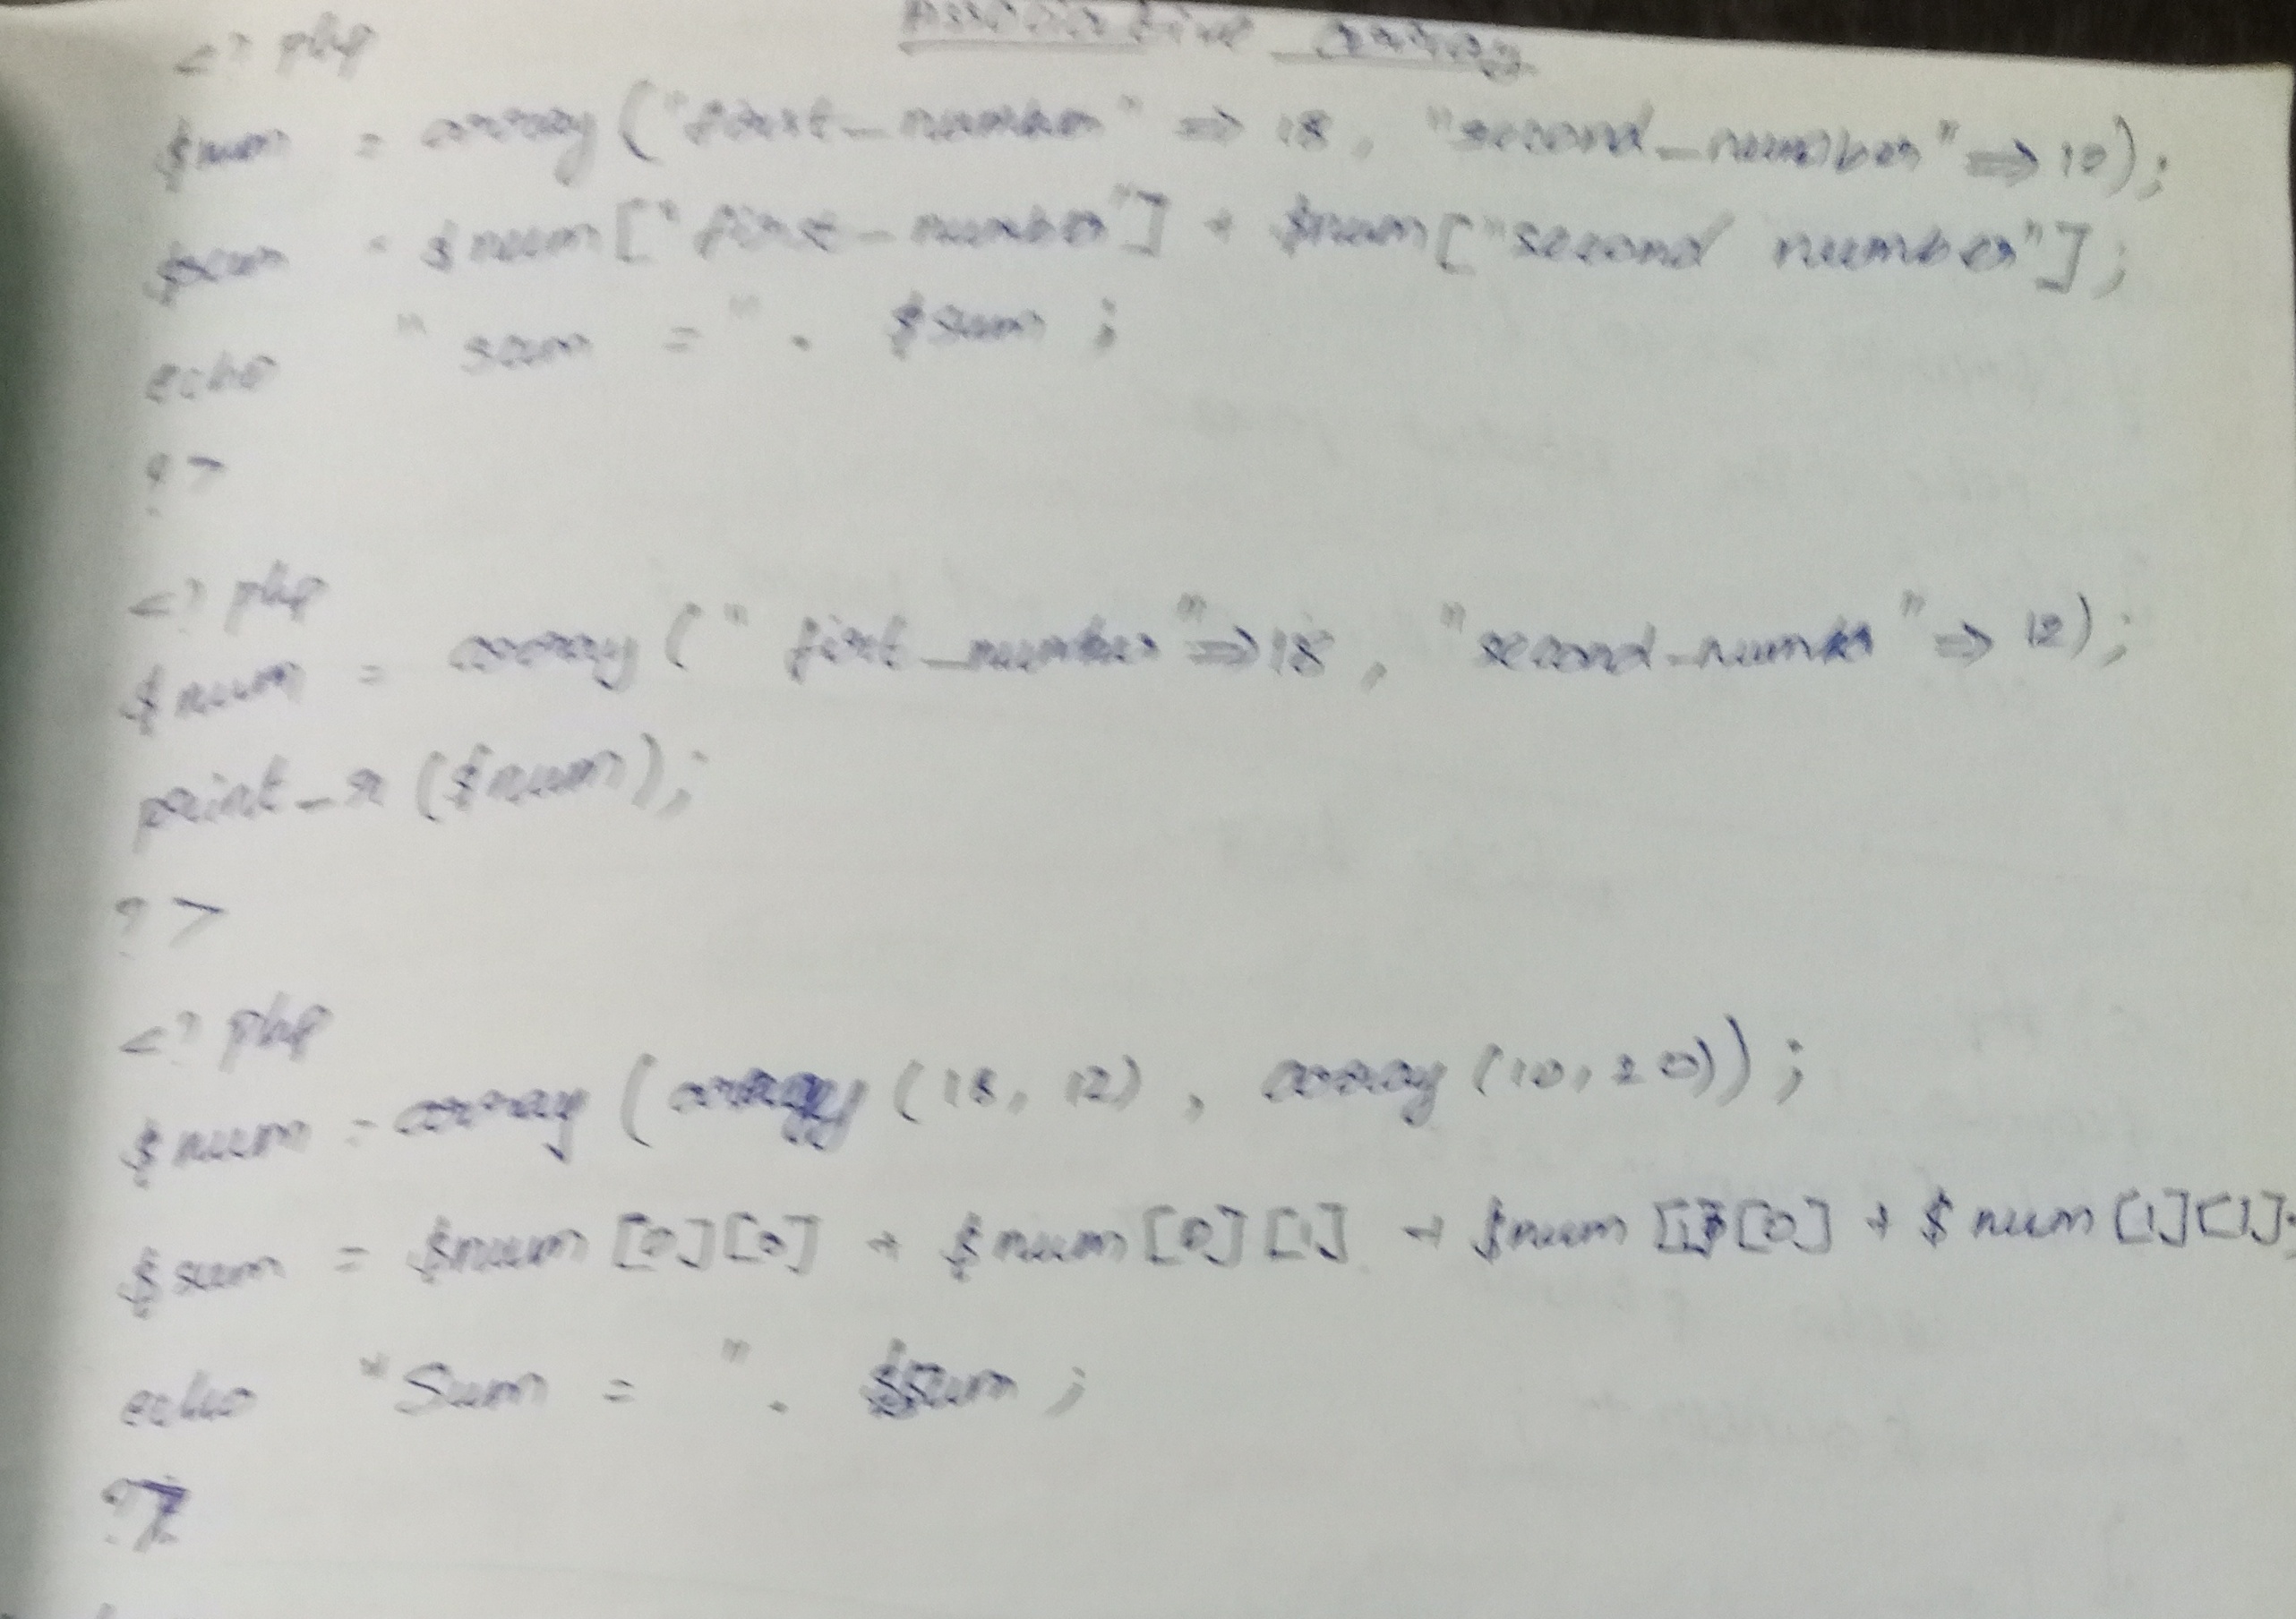 Associative array
<? php
$num = array ("first_number" => 18, "second_number" => 12);
$sum = $num ["first_number"] + $num ["second number"];
echo "sum = " . $sum ;
? >
<? php
$num = array (" first_number" => 18, "second_number" => 12);
print_r ($num);
? >
<? php
$num = array (array (18, 12), array (10, 20));
$sum = $num [0][0] + $num [0][1] + $num [1][0] + $num [1][1];
echo "Sum = " . $sum ;
? >